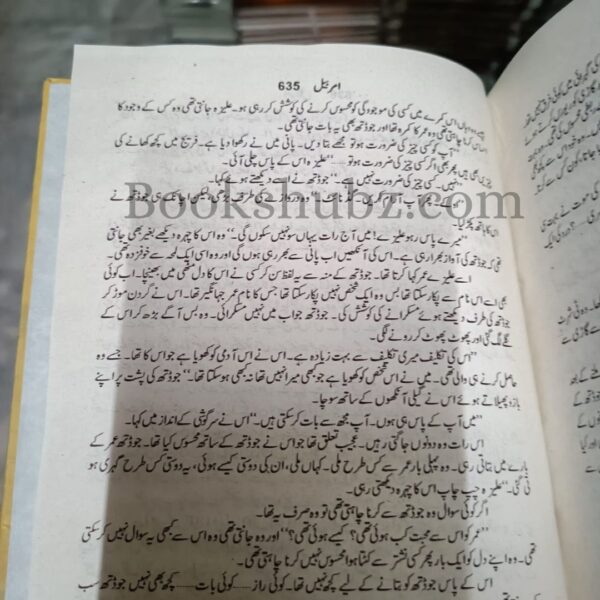 امر بیل 635
ہے وہاں اس کمرے میں کسی کی موجودگی کو محسوس کرنے کی کوشش کر رہی ہو۔ علیزہ جانتی تھی وہ کس کے وجود کا
کرنا چاہتی تھی وہ عمر کا کمرہ تھا اور جوڈتھ بھی یہ بات جانتی تھی۔
"آپ کو کسی چیز کی ضرورت ہو تو مجھے بتا دیں۔ پانی میں نے رکھوا دیا ہے۔ فریج میں کچھ کھانے کی
چیزیں بھی ہیں پھر بھی اگر کسی چیز کی ضرورت ہو تو......" علیزہ اس کے پاس چلی آئی۔
"نہیں۔ کسی چیز کی ضرورت نہیں ہے۔" جوڈتھ نے اسے دیکھتے ہوئے کہا۔
پھر آپ آرام کریں۔ گڈ نائٹ۔" وہ دروازے کی طرف بڑھی لیکن اچانک ہی جوڈتھ نے
اس کا ہاتھ پکڑ لیا۔
Bookshubz.com
"میرے پاس رہو علیزے! میں آج رات یہاں سو نہیں سکوں گی۔" وہ اس کا چہرہ دیکھے بغیر بھی جانتی
تھی کہ جوڈتھ کی آواز بھرا رہی ہے۔ اس کی آنکھیں اب پانی سے بھر رہی ہوں گی اور وہ اسی ایک لمحہ سے خوفزدہ تھی۔
اسے علیزے عمر کہا کرتا تھا۔ جوڈتھ کے منہ سے یہ لفظ سن کر کسی نے اس کا دل مٹھی میں بھینچا۔ اب کوئی
بھی اسے اس نام سے پکار سکتا تھا بس وہ ایک شخص نہیں پکار سکتا تھا جس کا نام عمر جہانگیر تھا۔ اس نے گردن موڑ کر
جوڈتھ کی طرف دیکھتے ہوئے مسکرانے کی کوشش کی۔ جوڈتھ جواب میں نہیں مسکرائی۔ وہ بس آگے بڑھ کر اس کے
گلے لگ گئی اور پھوٹ پھوٹ کر رونے لگی۔
"اس کی تکلیف میری تکلیف سے بہت زیادہ ہے۔ اس نے اس آدمی کو کھویا ہے جو اس کا تھا۔ جسے وہ
حاصل کرنے ہی والی تھی۔ میں نے اس شخص کو کھویا ہے جو کبھی میرا نہیں تھا نہ کبھی ہو سکتا تھا۔" جوڈتھ کی پشت پر اپنے
بازو پھیلاتے ہوئے اس نے گیلی آنکھوں کے ساتھ سوچا۔
"میں آپ کے پاس ہی ہوں۔ آپ مجھ سے بات کر سکتی ہیں۔" اس نے سرگوشی کے انداز میں کہا۔
اس رات وہ دونوں جاگتی رہیں۔ عجیب تعلق تھا جو اس نے جوڈتھ کے ساتھ محسوس کیا تھا۔ جوڈتھ عمر کے
بارے میں بتاتی رہی۔ وہ پہلی بار عمر سے کس طرح ملی۔ کہاں ملی، ان کی دوستی کیسے ہوئی، یہ دوستی کس طرح گہری ہو
تی گئی۔" علیزہ چپ چاپ اس کا چہرہ دیکھتی رہی۔
اگر کوئی سوال وہ جوڈتھ سے کرنا چاہتی تھی تو وہ صرف یہ تھا۔
"عمر کو اس سے محبت کب ہوئی تھی؟ کیسے ہوئی تھی؟" اور وہ جانتی تھی وہ اس سے کبھی یہ سوال نہیں کر سکتی
تھی۔ وہ اپنے دل کو ایک بار پھر کسی نشتر سے کٹتا ہوا محسوس نہیں کرنا چاہتی تھی۔
اس کے پاس جوڈتھ کو بتانے کے لیے کچھ نہیں تھا۔ کوئی راز...... کوئی بات...... کچھ بھی نہیں جوڈتھ سب